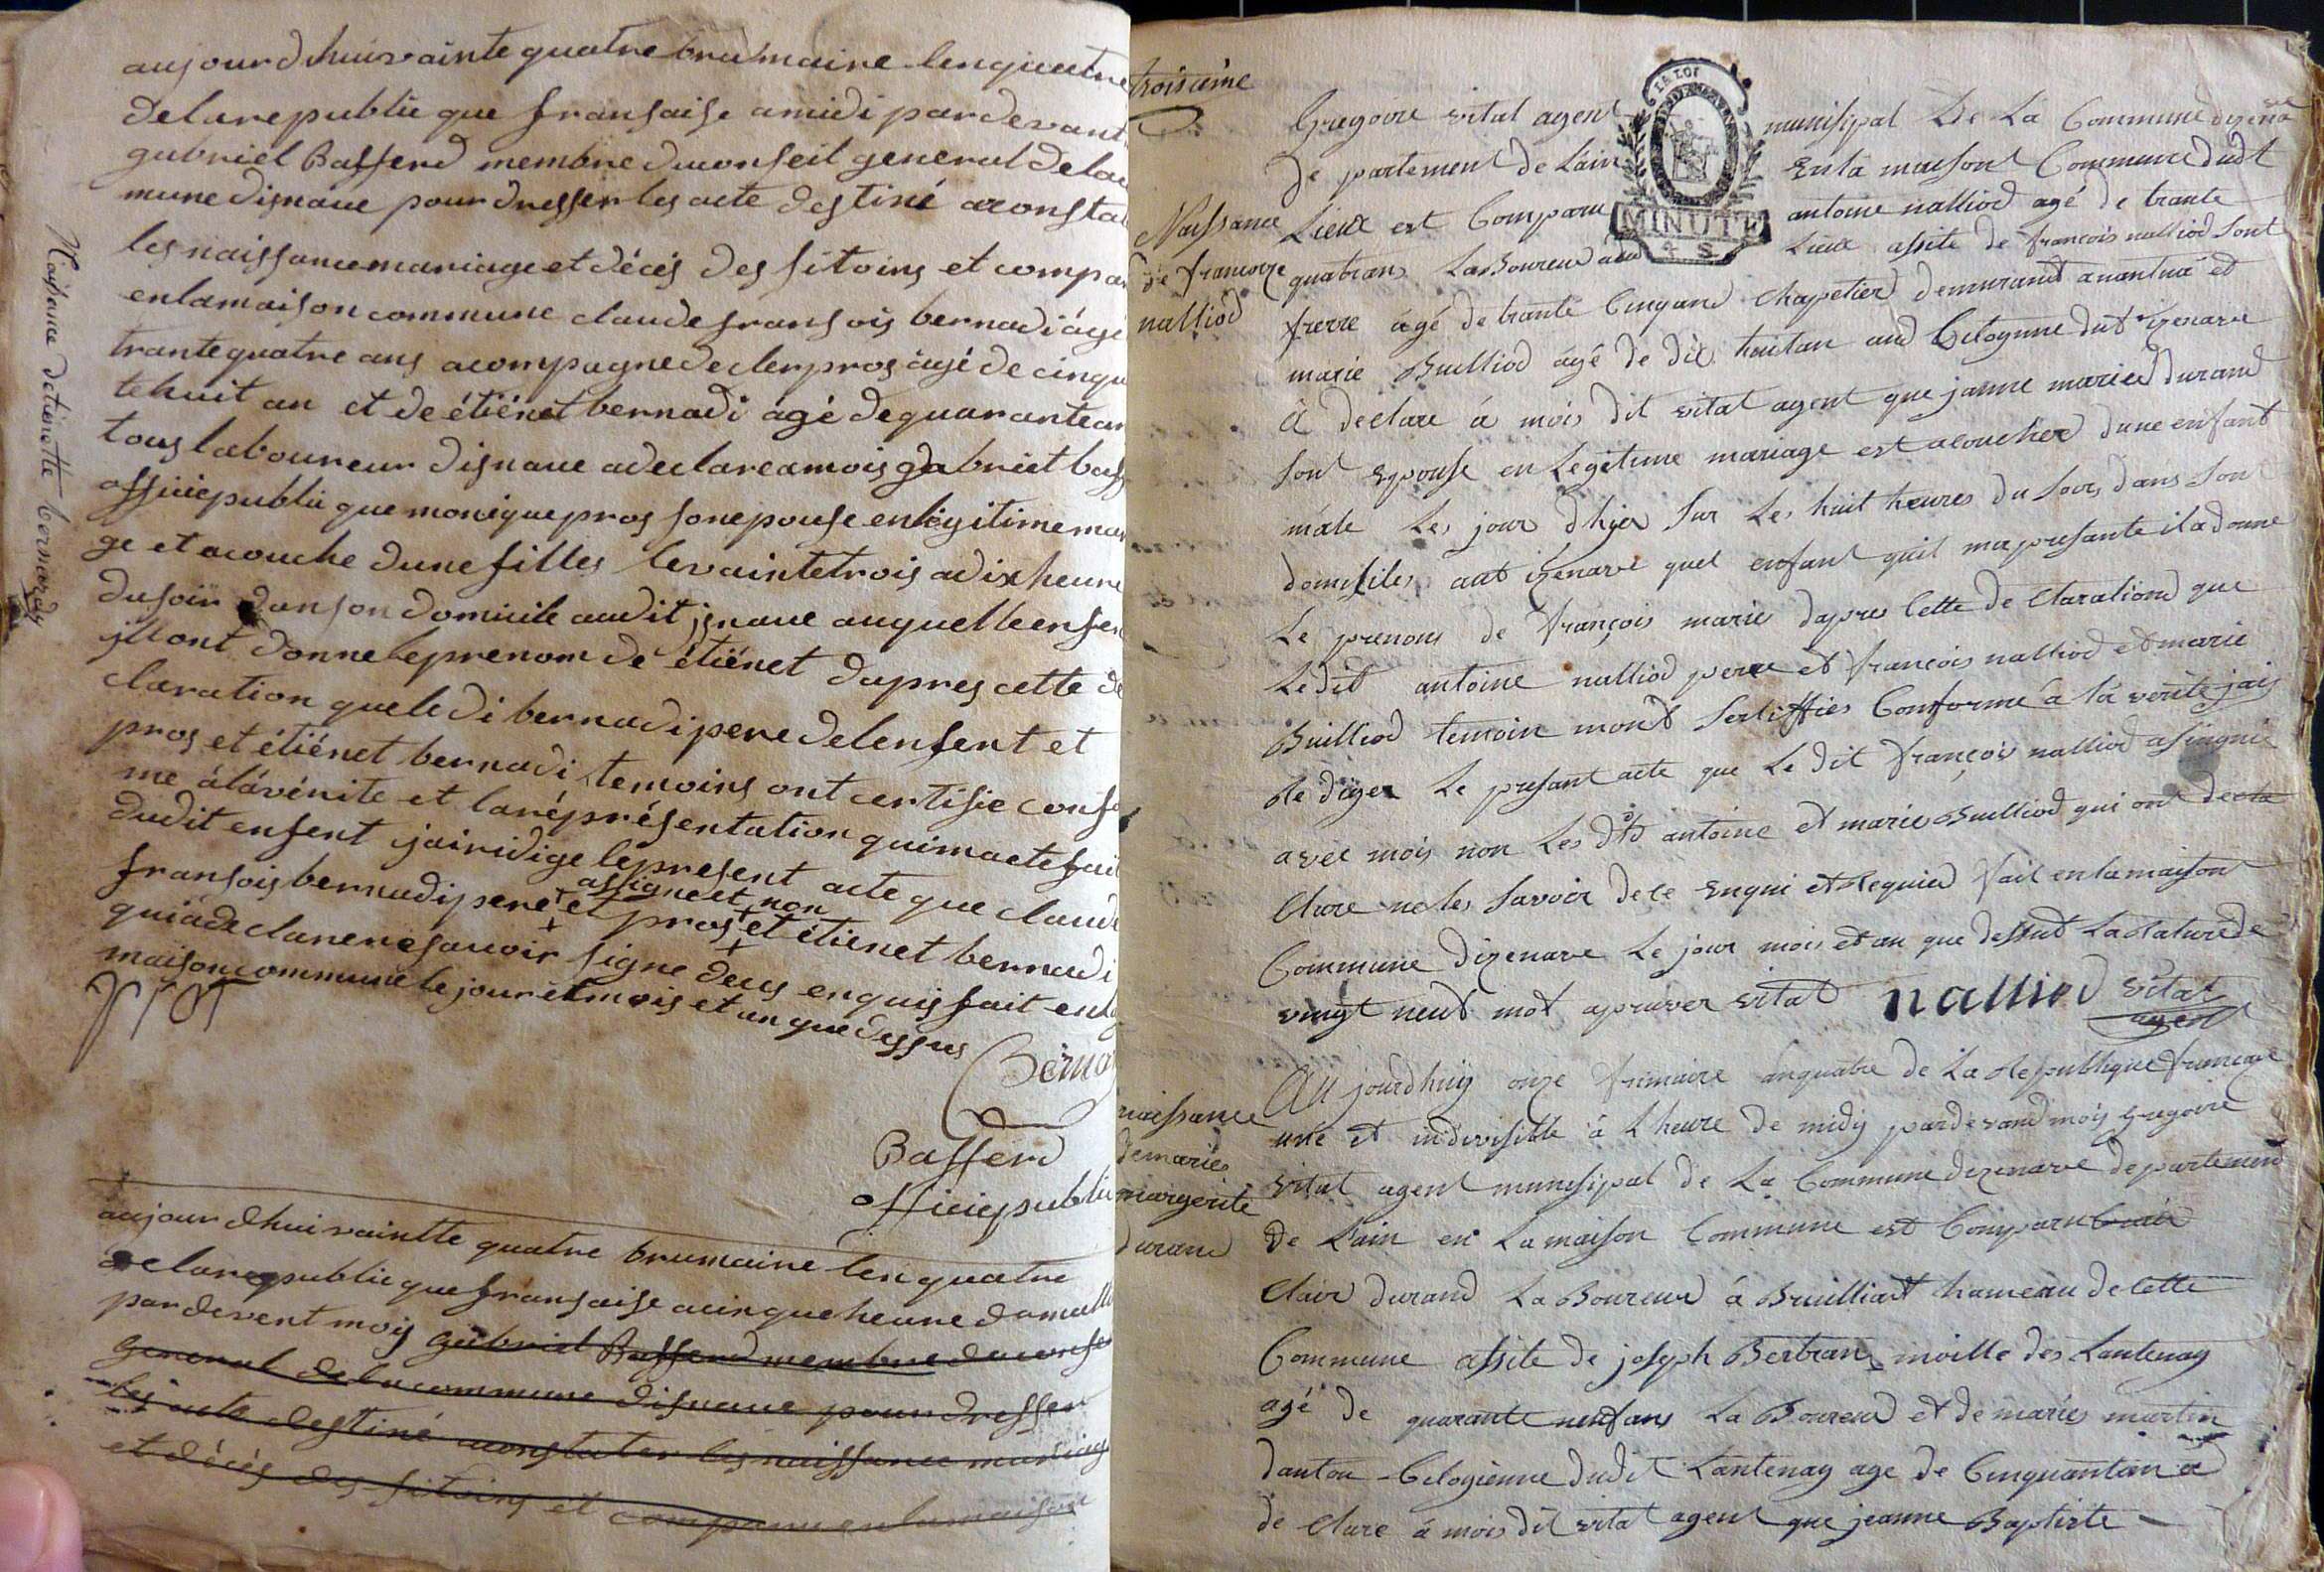 aujourdhuivainte quatre brumaire lenquatre
delarepublique fransaise amidi pardevant
gabriel Bafferd membre duconseil general dela
mune disnave pour dresser les acte destiné aconsta
les naissance mariage et décés des sitoins et compa
enlamaison commune claude fransois bernadi agé
trante quatre ans acompagne declerpros agé de cinqu
tehuit an et de étiénet bernadi agé dequarantean
tous laboureur disnave adeclareamois gabriel baff
officiepublic que monique pros sonepouse enlegitimemar
ge et acouche dunefilles levaintetrois adixheure
dusoir dansondomicile audit jsnave auquelleenfen
jllont donneleprenom de étiénet dapres cette de
claration queledi bernadi pere delenfent et
pros et étiénet bernadi temoins ont certifie confo
me álávérite et laréprésentation quimaetefait
dudit enfent jairidige lépresent acte que claude
assigne et non
fransois bernadi pere et pros et étienet bernadi
quiadeclarenesavoir signe deus enquis fait enla
maisoncommune lejour etmois et an quedessus
pros
Berna
Bafferd
officiepublic
Naissance detienette bernardy
aujourdhuivaintte quatre brumaire lenquatre
delarepublique fransaise acinqueheure dumati
pardevent mois gabriel Bafferd membre duconse
general delacommune disnave pour dresser
les acte destiné aconstater les naissance mariage
et décés des sitoins et comparu enlamaison
troisieme
LA LOI
MINUTE
4 S
Gregoire vital agent munisipal de La Commune dizena
ve
de partement de Lain en la maisont Commune dudt
Lieux est Comparu antoine nalliod agé de trante
quatrans LaBoureud aud Lieux assite de françois nalliod sont
frerre ágé de trante Cinqand chapetier demurant anantua et
marie Builliod agé de dix huitan aud Citoyenne dut izenave
A declare á mois dit vital agent que janne maried durand
sont Epouse en Legétime mariage est acoucher dune enfant
male Les jour dhier sur Les huit heures du soir dans sont
domisiles aut izenave quel enfant quil ma presante il a donne
Le prenons de françois marie dapres Cette de Claration que
Le dit antoine nalliod pere et françois nalliod et marie
Buillod temoin mont sertiffies Comforme á la verite jais
Rediger Le presant acte que Le dit françois nalliod asingnie
avec mois non Les dts antoine et marie Builliod qui ont decla
Clare ne les savoir de ce Enqui et Requied fait en la maison
Commune dizenave Le jour mois et an que dessut La Rature de
vingt neuf mot apruver vital nalliod vital
agent
Naissance
de francoize
nalliod
Au jourdhuy onze frimaire anquatre de La Republique francaise
une et indivisible á Lheure de midy pardevand moy gregoire
vital agent munisipal de La Commune dizenave departement
de Lain en La maison Commune est Comparu Clair
Clair durand LaBoureur á Bruilliart hameau de Cette
Commune assite de joseph Bertrans moille des Lantenay
agé de quarante neuf ans LaBoureud et de maries martin
danton Citoyienne dudit Lantenay age de Cinquantan a
de Clare á mois dit vital agent que jeanne Baptiste
naissance
demaries
margerite
durand